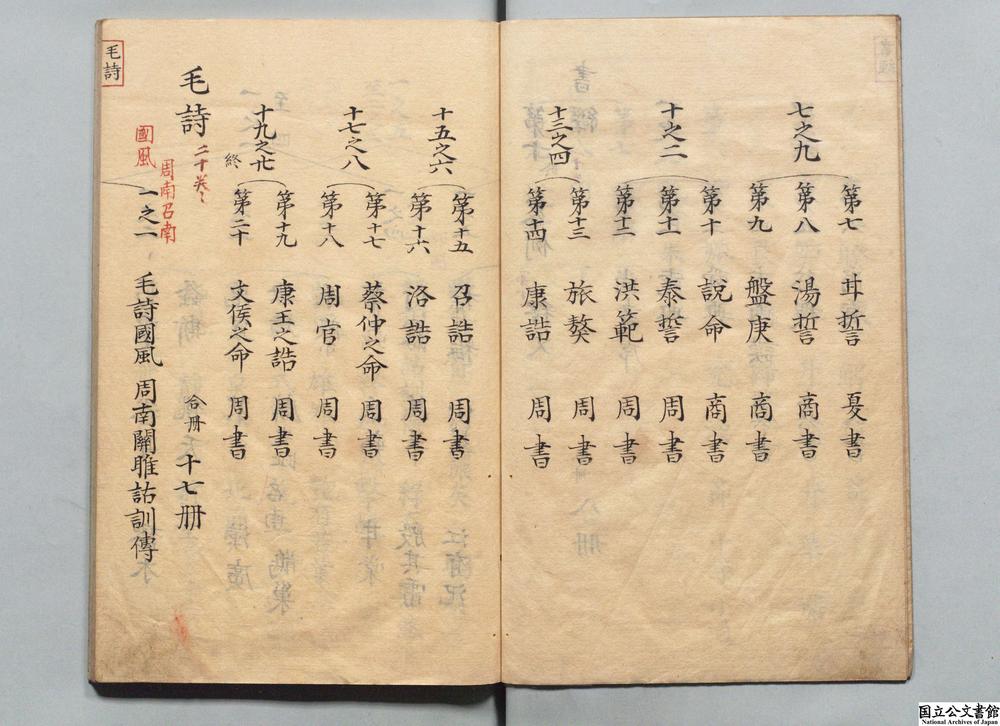 七之九
第七 甘誓 夏書
第八 湯誓 商書
第九 盤庚 商書
十之二
第十 說命 商書
第十一 泰誓 周書
第十二 洪範 周書
十三之四
第十三 旅獒 周書
第十四 康誥 周書
毛詩
十五之六
第十五 召誥 周書
第十六 洛誥 周書
十七之八
第十七 蔡仲之命 周書
第十八 周官 周書
十九之廿 終
第十九 康王之誥 周書
第二十 文侯之命 周書
毛詩 二十卷 合冊 十七冊
國風 周南召南
一之二 毛詩國風 周南關雎詁訓傳
国立公文書館
National Archives of Japan